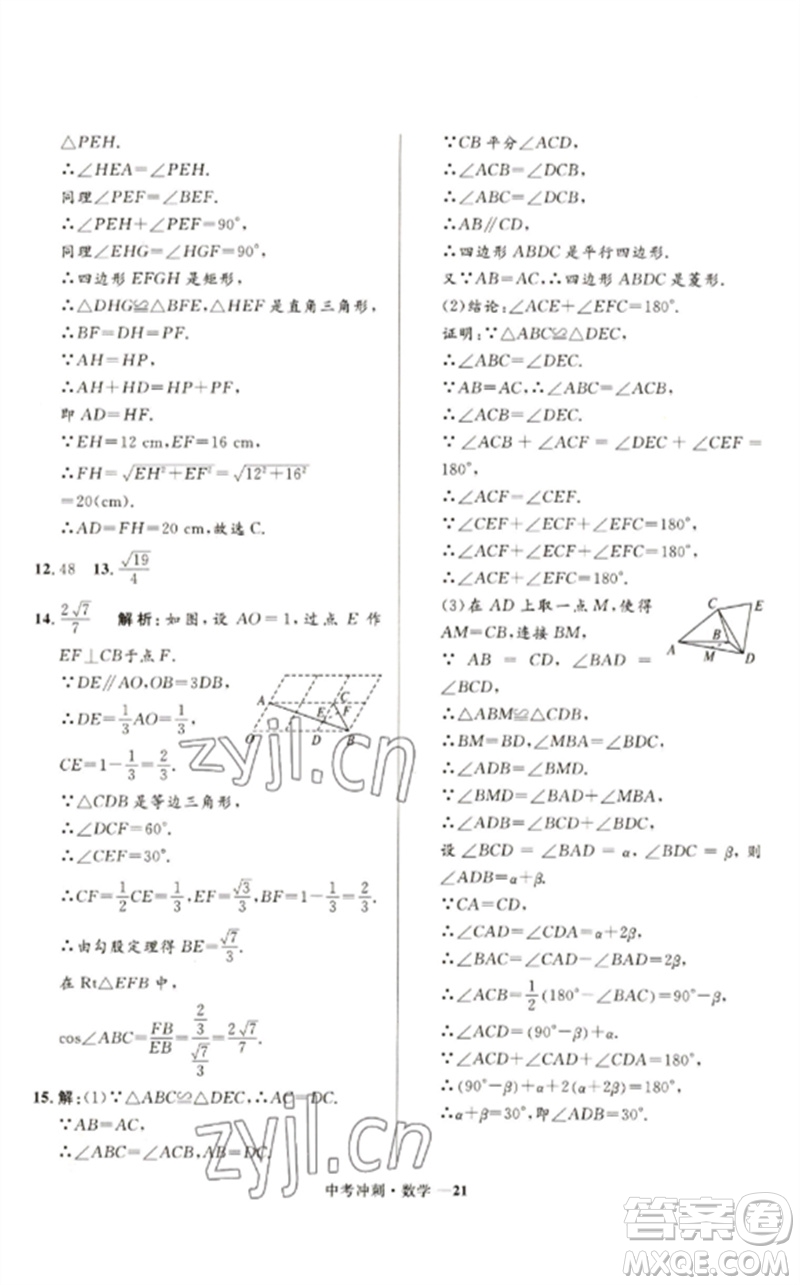 △PEH.
∴∠HEA=∠PEH.
同理∠PEF=∠BEF.
∴∠PEH+∠PEF=90°,
同理∠EHG=∠HGF=90°,
∴四边形 EFGH 是矩形,
∴△DHG≌△BFE,△HEF 是直角三角形,
∴BF=DH=PF.
∵AH=HP,
∴AH+HD=HP+PF,
即 AD=HF.
∵EH=12 cm,EF=16 cm,
∴FH=√(EH²+EF²)=√(12²+16²)
=20(cm).
∴AD=FH=20 cm,故选 C.
12.48 13.√19/4
14.2√7/7 解析:如图,设 AO=1,过点 E 作
EF⊥CB于点 F.
∵DE∥AO,OB=3DB,
∴DE=1/3AO=1/3,
CE=1-1/3=2/3.
∵△CDB 是等边三角形,
∴∠DCF=60°.
∴∠CEF=30°.
∴CF=1/2CE=1/3,EF=√3/3,BF=1-1/3=2/3.
∴由勾股定理得 BE=√7/3.
在 Rt△EFB 中,
cos∠ABC=FB/EB=(2/3)/(√7/3)=2√7/7.
A C E F O D B
15.解:(1)∵△ABC≌△DEC,∴AC=DC.
∵AB=AC,
∴∠ABC=∠ACB,AB=DC.
∵CB 平分∠ACD,
∴∠ACB=∠DCB,
∴∠ABC=∠DCB,
∴AB∥CD,
∴四边形 ABDC 是平行四边形.
又∵AB=AC,∴四边形 ABDC 是菱形.
(2)结论:∠ACE+∠EFC=180°.
证明:∵△ABC≌△DEC,
∴∠ABC=∠DEC.
∵AB=AC,∴∠ABC=∠ACB,
∴∠ACB=∠DEC.
∵∠ACB+∠ACF=∠DEC+∠CEF=
180°,
∴∠ACF=∠CEF.
∵∠CEF+∠ECF+∠EFC=180°,
∴∠ACF+∠ECF+∠EFC=180°,
∴∠ACE+∠EFC=180°.
(3)在 AD 上取一点 M,使得
AM=CB,连接 BM,
∵ AB = CD,∠BAD =
∠BCD,
∴△ABM≌△CDB,
∴BM=BD,∠MBA=∠BDC,
∴∠ADB=∠BMD.
∵∠BMD=∠BAD+∠MBA,
∴∠ADB=∠BCD+∠BDC,
设∠BCD=∠BAD=α,∠BDC=β,则
∠ADB=α+β.
∵CA=CD,
∴∠CAD=∠CDA=α+2β,
∴∠BAC=∠CAD-∠BAD=2β,
∴∠ACB=1/2(180°-∠BAC)=90°-β,
∴∠ACD=(90°-β)+α.
∵∠ACD+∠CAD+∠CDA=180°,
∴(90°-β)+α+2(α+2β)=180°,
∴α+β=30°,即∠ADB=30°.
C E A B M D
中考冲刺·数学—21
zyjl.cn
zyjl.cn
答案卷
MXQE.COM